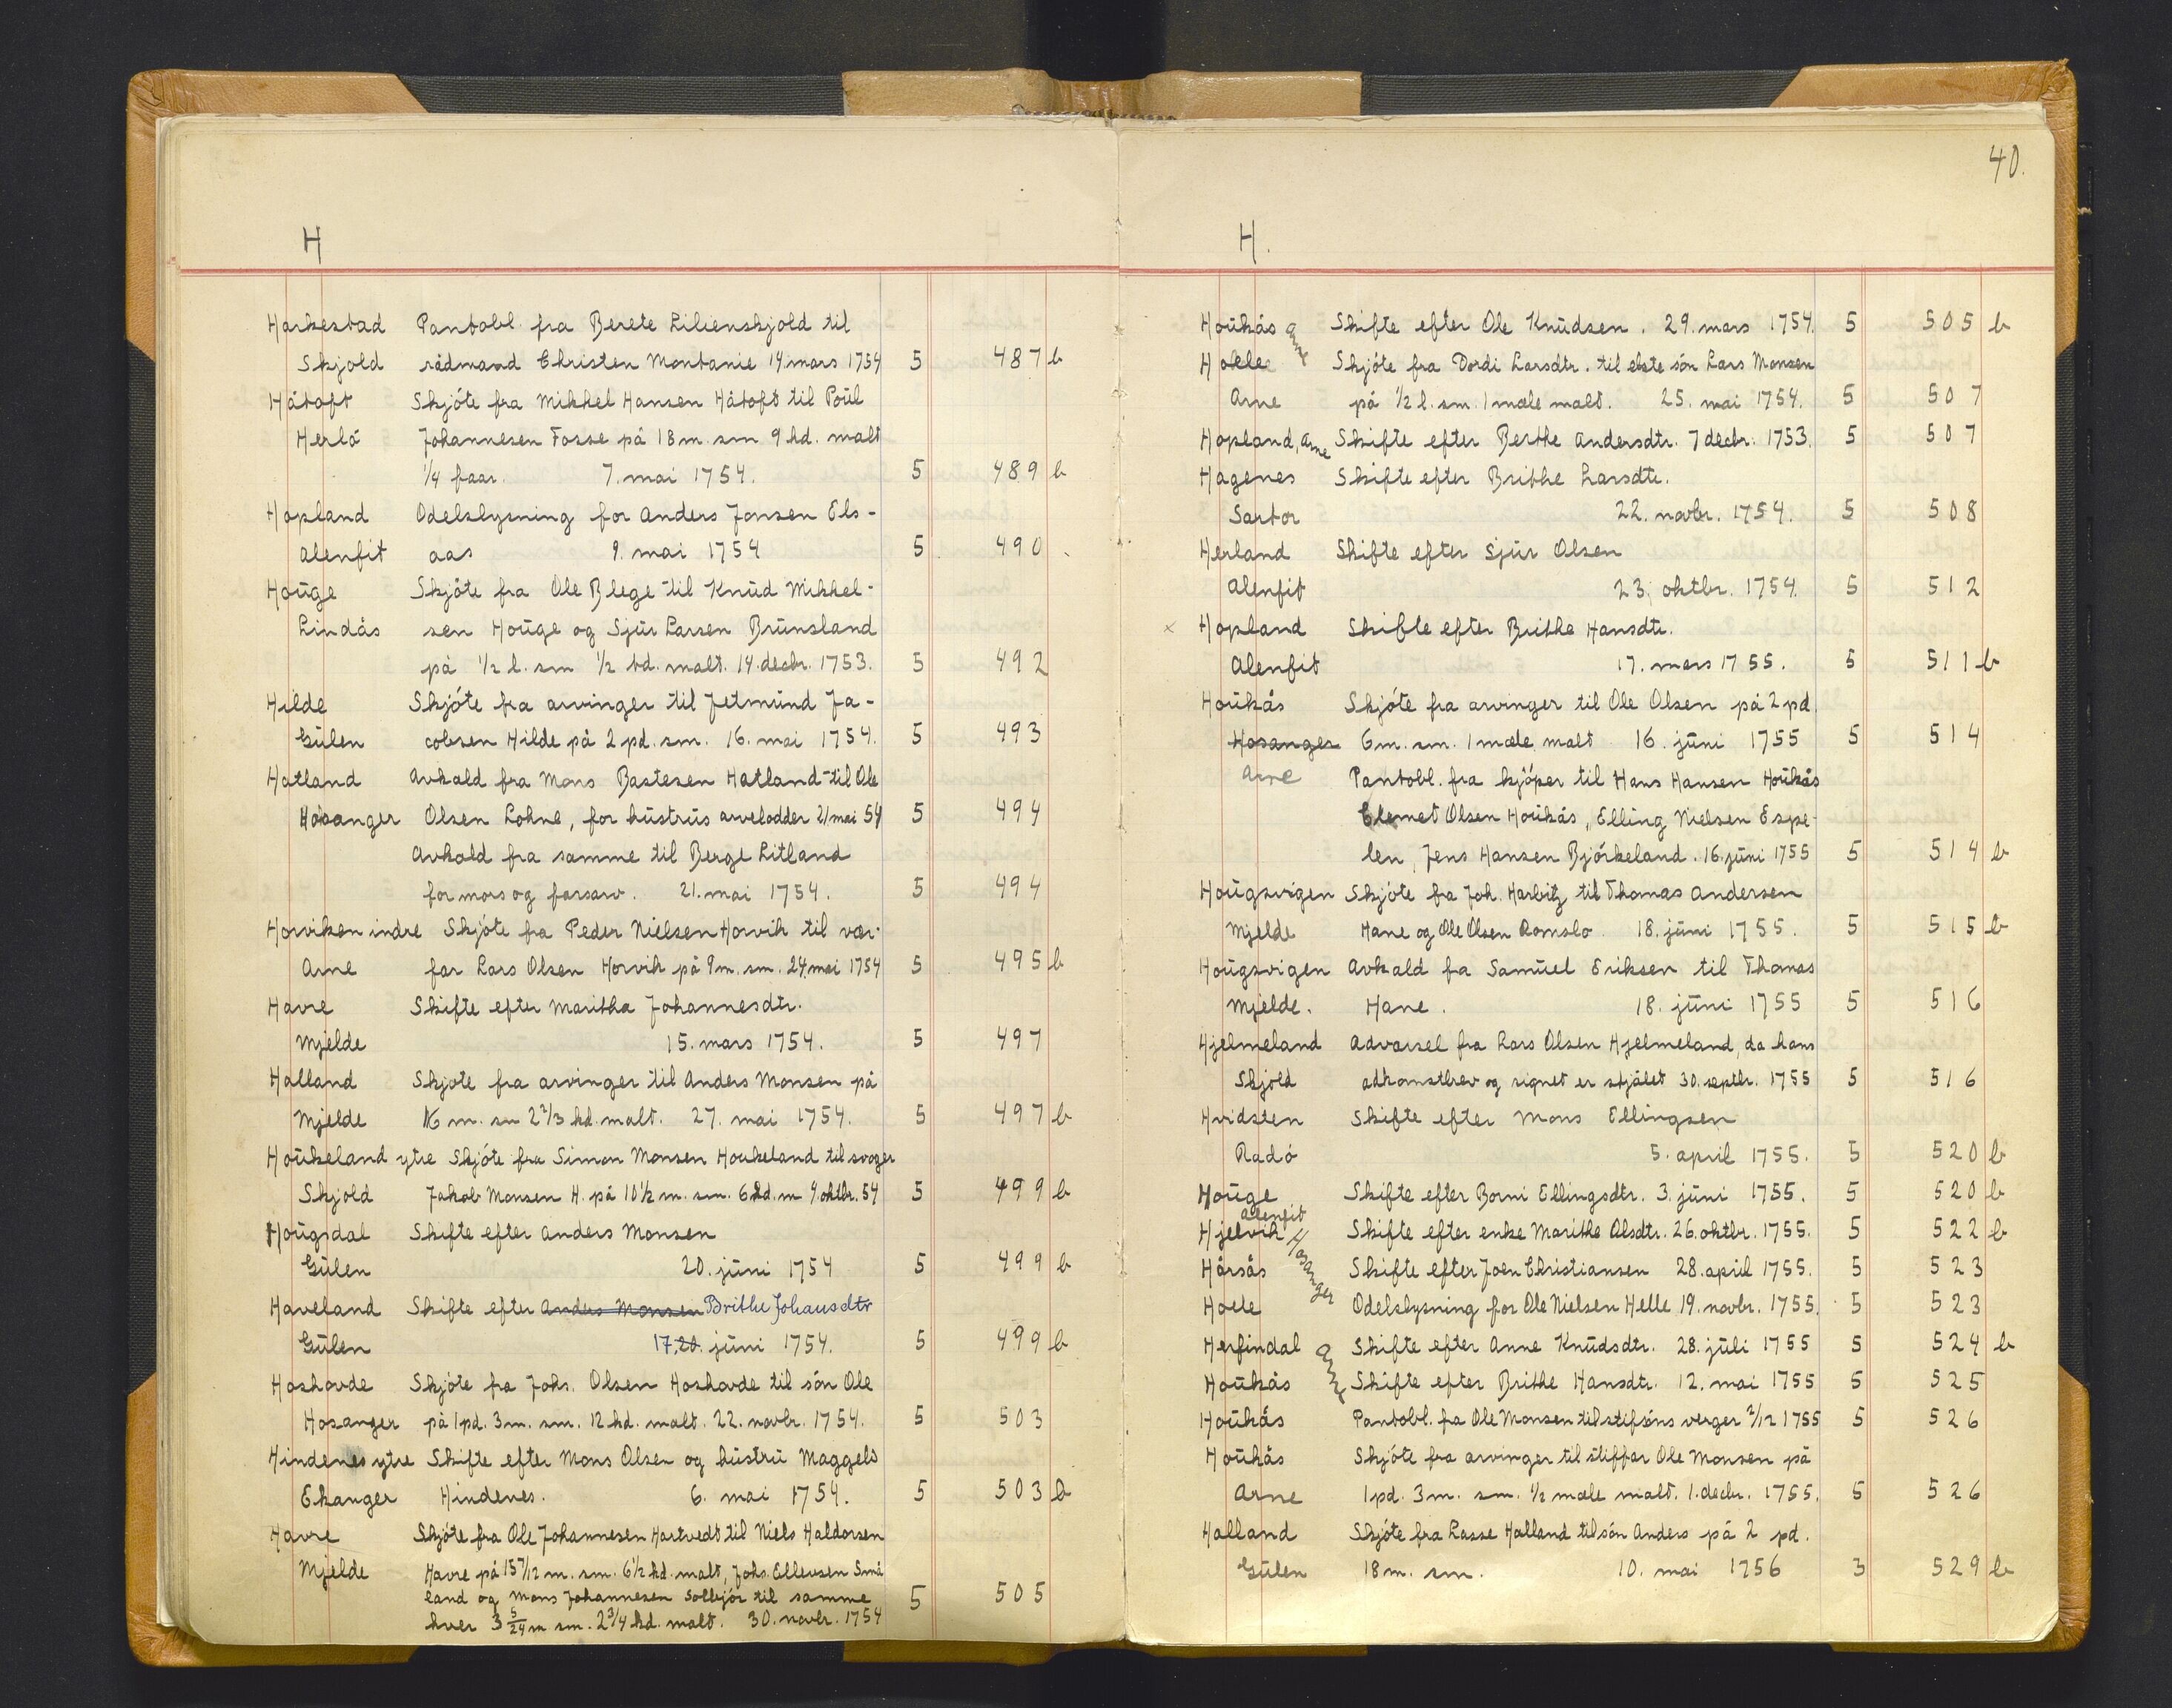 H
Harkestad Pantobl. fra Berete Lilienskjold til
Skjold rådmand Christen Montanie 14 mars 1754 5 487 b
Håtoft Skjóte fra Mikkel Hansen Håtoft til Poŭl
Herló Johannesen Fosse på 18 m. sm 9 kd. malt
1/4 faar. 7. mai 1754. 5 489 b
Hopland Odelslysning for Anders Jonsen Els-
Alenfit aas 9. mai 1754 5 490
Hoŭge Skjóte fra Ole Blege til Knŭd Mikkel-
Lindås sen Hoŭge og Sjŭr Larsen Brŭnsland
på 1/2 l. sm 1/2 td. malt. 14. decbr. 1753. 5 492
Hilde Skjóte fra arvinger til Jetmŭnd Ja-
Gŭlen cobsen Hilde på 2 pd. sm. 16. mai 1754. 5 493
Hatland Avkald fra Mons Bastesen Hatland til Ole
Hosanger Olsen Lohne, for hŭstrŭs arvelodder 21 mai 54 5 494
Avkald fra samme til Berge Litland
for mors og farsarv. 21. mai 1754. 5 494
Horviken indre Skjóte fra Peder Nielsen Horvik til vær-
Arne far Lars Olsen Horvik på 9 m. sm. 24. mai 1754 5 495 b
Havre Skifte efter Maritha Johannesdtr.
Mjelde 15. mars 1754. 5 497
Halland Skjote fra arvinger til Anders Monsen på
Mjelde 16 m. sm 2 2/3 kd. malt. 27. mai 1754. 5 497 b
Hoŭkeland ytre Skjóte fra Simon Monsen Houkeland til svoger
Skjold Jakob Monsen H. på 10 1/2 m. sm. 6 kd. m 4. oktbr. 54 5 499 b
Hoŭgsdal Skifte efter Anders Monsen
Gŭlen 20. jŭni 1754 5 499 b
Haveland Skifte efter Anders Monsen Brithe Johansdtr
Gŭlen 17. 20. jŭni 1754. 5 499 b
Hoshovde Skjóte fra Johs. Olsen Hoshovde til són Ole
Hosanger på 1 pd. 3 m. sm. 12 kd. malt. 22. novbr. 1754. 5 503
Hindenes ytre Skifte efter Mons Olsen og hŭstrŭ Maggeld
Ekanger Hindenes. 6. mai 1754. 5 503 b
Havre Skjóte fra Ole Johannesen Hartvedt til Niels Haldorsen
Mjelde Havre på 15 7/12 m. sm. 6 1/2 kd. malt, Johs. Ellevsen Små
land og Mons Johannesen Solbjór til samme
hver 3 5/24 m sm. 2 3/4 kd. malt. 30. novbr. 1754 5 505
40.
H.
Hoŭkås Arne Skifte efter Ole Knŭdsen. 29. mars 1754. 5 505 b
Holle Skjóte fra Dordi Larsdtr. til elste són Lars Monsen
Arne på 1/2 l. sm. 1 mæle malt. 25. mai 1754. 5 507
Hopland, Arne Skifte efter Berthe Andersdtr. 7 decbr. 1753. 5 507
Hagenes Skifte efter Brithe Larsdtr.
Sartor 22. novbr. 1754. 5 508
Herland Skifte efter Sjŭr Olsen
Alenfit 23. oktbr. 1754. 5 512
x Hopland Skifte efter Brithe Hansdtr.
Alenfit 17. mars 1755. 5 511 b
Hoŭkås Skjóte fra arvinger til Ole Olsen på 2 pd.
Hosanger 6 m. sm. 1 mæle malt 16. jŭni 1755 5 514
Arne Pantobl. fra kjóper til Hans Hansen Hoŭkås
Clemet Olsen Hoŭkås, Elling Nielsen Espe-
len, Jens Hansen Bjórkeland. 16. jŭni 1755 5 514 b
Hoŭgsvigen Skjóte fra Joh. Harbitz til Thomas Andersen
Mjelde Hane og Ole Olsen Romslo 18. jŭni 1755. 5 515 b
Hoŭgsvigen Avkald fra Samŭel Eriksen til Thomas
Mjelde. Hane. 18. jŭni 1755 5 516
Hjelmeland Advarsel fra Lars Olsen Hjelmeland, da hans
Skjold adkomstbrev og signet er stjålet 30. septbr. 1755 5 516
Hvidsten Skifte efter Mons Ellingsen
Radó 5. april 1755. 5 520 b
Hoŭge Skifte efter Borni Ellingsdtr. 3. jŭni 1755. 5 520 b
Alenfit
Hjelvik Hosanger Skifte efter enke Marithe Olsdtr. 26. oktbr. 1755. 5 522 b
Hårsås Skifte efter Joen Christiansen 28. april 1755. 5 523
Hoele Odelslysning for Ole Nielsen Helle 19. novbr. 1755. 5 523
Herfindal Arne Skifte efter Anne Knŭdsdtr. 28. jŭli 1755 5 524 b
Hoŭkås Skifte efter Brithe Hansdtr. 12. mai 1755 5 525
Hoŭkås Pantobl. fra Ole Monsen til stifsóns verger 2/12 1755 5 526
Hoŭkås Skjóte fra arvinger til stiffar Ole Monsen på
Arne 1 pd. 3 m. sm. 1/2 mæle malt. 1. decbr. 1755. 5 526
Halland Skjóte fra Lasse Halland til són Anders på 2 pd.
Gŭlen 18 m. sm. 10. mai 1756 3 529 b